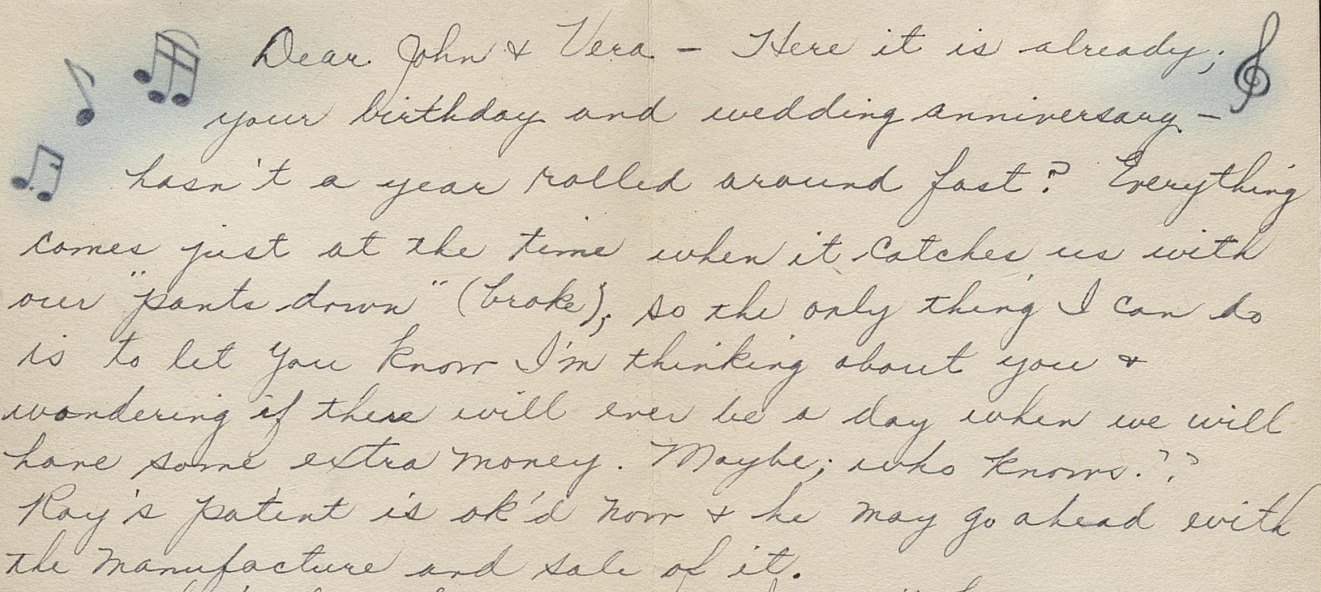 Dear John & Vera – Here it is already;
your birthday and wedding anniversary –
hasn't a year rolled around fast? Everything
comes just at the time when it catches us with
our "pants down" (broke); so the only thing I can do
is to let you know I'm thinking about you &
wondering if there will ever be a day when we will
have some extra money. Maybe; who knows.??
Ray's patent is ok'd now & he may go ahead with
the manufacture and sale of it.